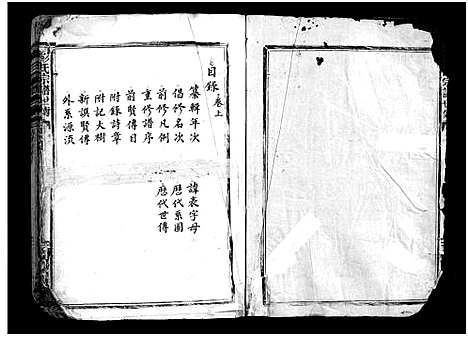 目錄 卷上
纂輯年次
倡修名次
前修凡例
重修譜序
前賢傳目
附錄詩章
附記大樹
新譔賢傳
外系源流
諱表字母
歷代系圖
歷代世傳
氏宗譜世傳